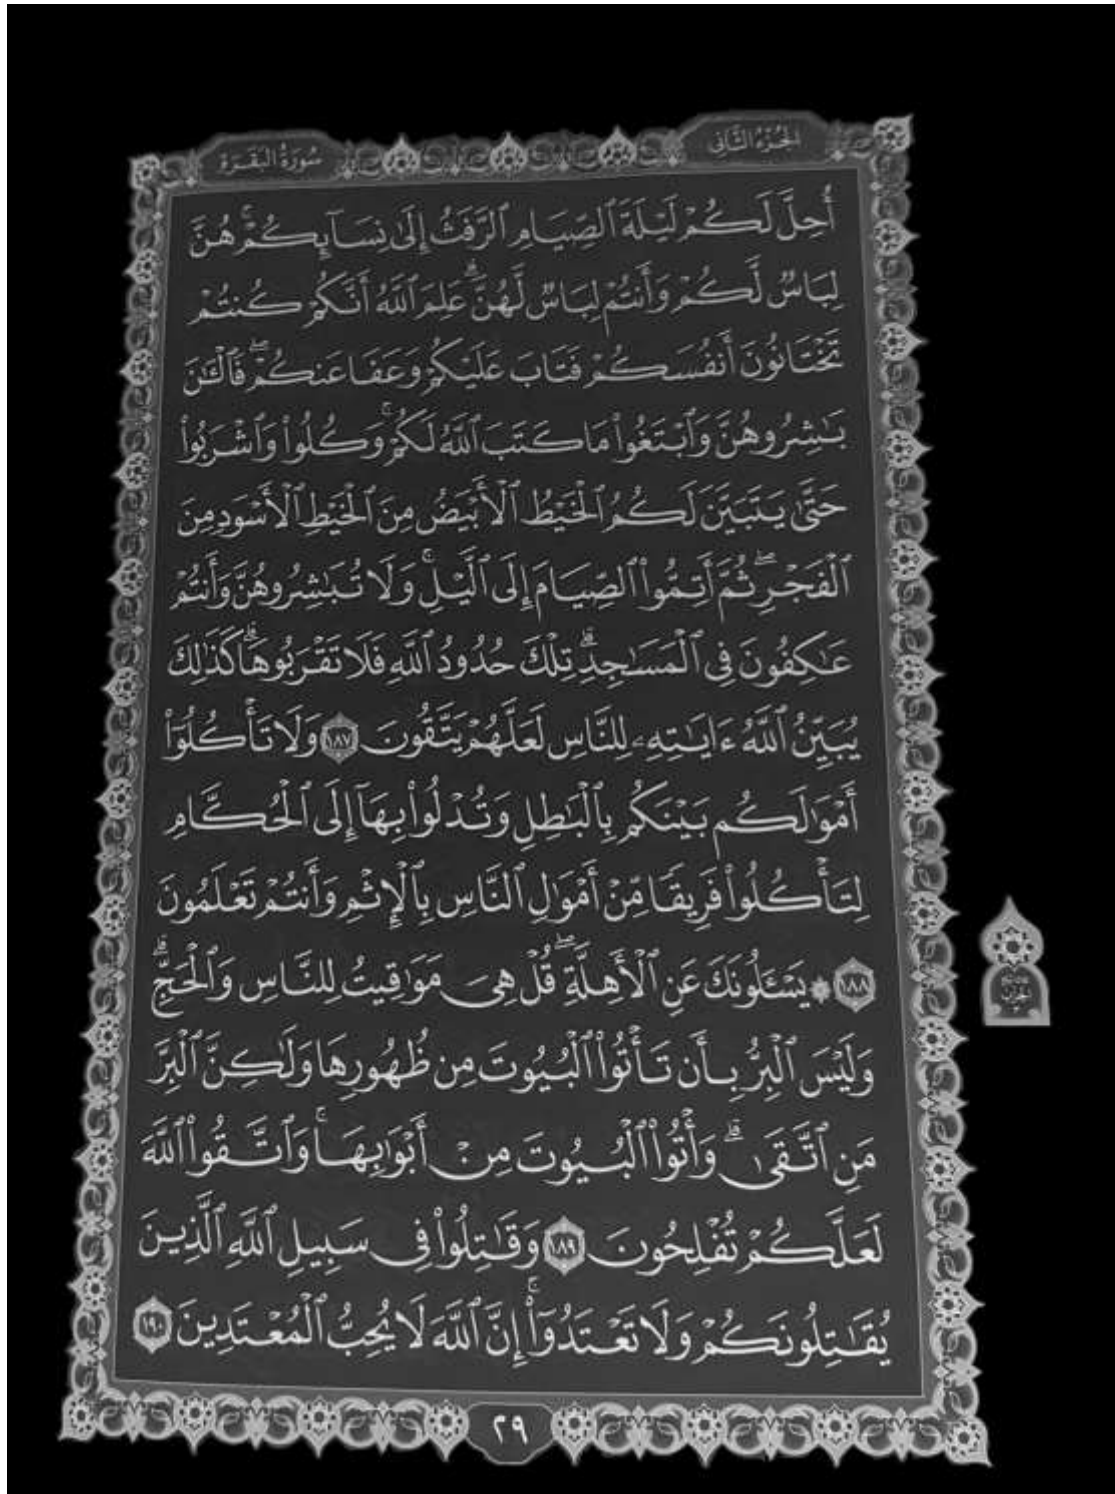 الجُزْءُ الثَّانِي
سُورَةُ البَقَرَةِ
أُحِلَّ لَكُمْ لَيْلَةَ ٱلصِّيَامِ ٱلرَّفَثُ إِلَىٰ نِسَآئِكُمْۚ هُنَّ
لِبَاسٌ لَّكُمْ وَأَنتُمْ لِبَاسٌ لَّهُنَّۗ عَلِمَ ٱللَّهُ أَنَّكُمْ كُنتُمْ
تَخْتَانُونَ أَنفُسَكُمْ فَتَابَ عَلَيْكُمْ وَعَفَا عَنكُمْۖ فَٱلْـَٰٔنَ
بَـٰشِرُوهُنَّ وَٱبْتَغُوا۟ مَا كَتَبَ ٱللَّهُ لَكُمْۚ وَكُلُوا۟ وَٱشْرَبُوا۟
حَتَّىٰ يَتَبَيَّنَ لَكُمُ ٱلْخَيْطُ ٱلْأَبْيَضُ مِنَ ٱلْخَيْطِ ٱلْأَسْوَدِ مِنَ
ٱلْفَجْرِۖ ثُمَّ أَتِمُّوا۟ ٱلصِّيَامَ إِلَى ٱلَّيْلِۚ وَلَا تُبَـٰشِرُوهُنَّ وَأَنتُمْ
عَـٰكِفُونَ فِى ٱلْمَسَـٰجِدِۗ تِلْكَ حُدُودُ ٱللَّهِ فَلَا تَقْرَبُوهَاۗ كَذَٰلِكَ
يُبَيِّنُ ٱللَّهُ ءَايَـٰتِهِۦ لِلنَّاسِ لَعَلَّهُمْ يَتَّقُونَ ١٨٧ وَلَا تَأْكُلُوٓا۟
أَمْوَٰلَكُم بَيْنَكُم بِٱلْبَـٰطِلِ وَتُدْلُوا۟ بِهَآ إِلَى ٱلْحُكَّامِ
لِتَأْكُلُوا۟ فَرِيقًا مِّنْ أَمْوَٰلِ ٱلنَّاسِ بِٱلْإِثْمِ وَأَنتُمْ تَعْلَمُونَ
١٨٨ ۞ يَسْـَٔلُونَكَ عَنِ ٱلْأَهِلَّةِۖ قُلْ هِىَ مَوَٰقِيتُ لِلنَّاسِ وَٱلْحَجِّۗ
وَلَيْسَ ٱلْبِرُّ بِأَن تَأْتُوا۟ ٱلْبُيُوتَ مِن ظُهُورِهَا وَلَـٰكِنَّ ٱلْبِرَّ
مَنِ ٱتَّقَىٰۗ وَأْتُوا۟ ٱلْبُيُوتَ مِنْ أَبْوَٰبِهَاۚ وَٱتَّقُوا۟ ٱللَّهَ
لَعَلَّكُمْ تُفْلِحُونَ ١٨٩ وَقَـٰتِلُوا۟ فِى سَبِيلِ ٱللَّهِ ٱلَّذِينَ
يُقَـٰتِلُونَكُمْ وَلَا تَعْتَدُوٓا۟ۚ إِنَّ ٱللَّهَ لَا يُحِبُّ ٱلْمُعْتَدِينَ ١٩٠
٢٩